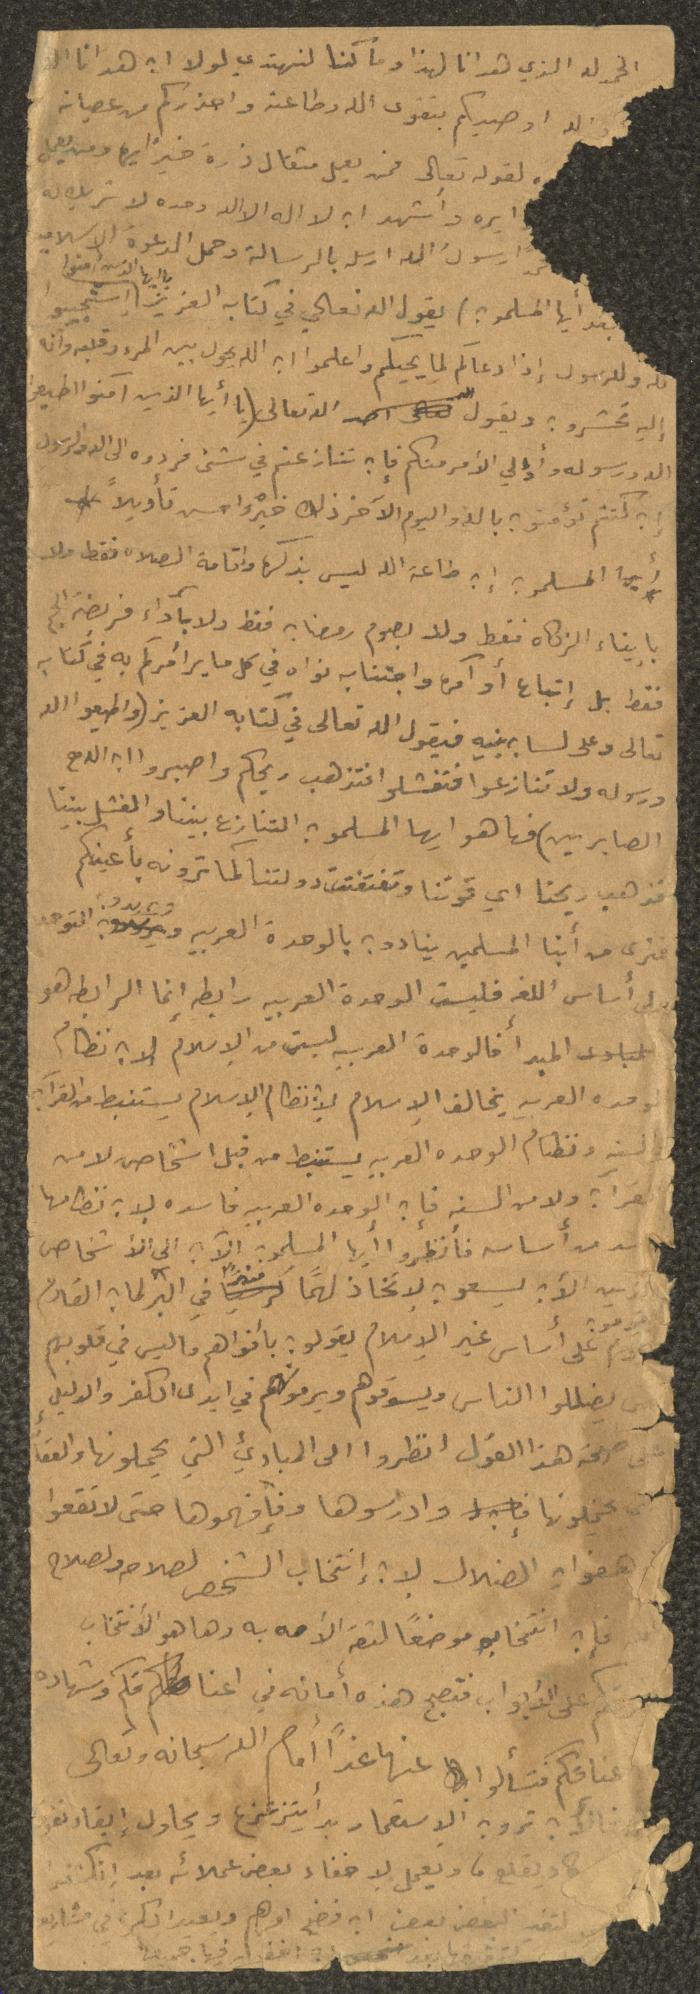 الحمد لله الذي هدانا لهذا وما كنا لنهتدي لولا ان هدانا الله
اوصيكم بتقوى الله وطاعته واحذركم من عصيانه
لقوله تعالى فمن يعمل مثقال ذرة خيرًا يره ومن يعمل
ايره وأشهد ان لا اله الا الله وحده لا شريك له
رسولُ الله ارسله بالرسالة وحمل الدعوة الإسلاميه
بعد أيها المسلمون) يقول الله تعالى في كتابه العزيز (يا ايها الذين آمنوا استجيبوا
لله وللرسول إذا دعاكم لما يحييكم واعلموا ان الله يحول بين المرء وقلبه وأنه
إليه تحشرون ويقول الله تعالى (يا أيها الذين آمنوا اطيعوا
الله ورسوله وأولي الأمر منكم فإن تنازعتم في شئ فردوه الى الله والرسول
إن كنتم تؤمنون بالله واليوم الآخر ذلك خيرٌ واحسن تأويلاً
أيها المسلمون إن طاعة الله ليس بذكرها واقامة الصلاه فقط ولا
بإيتاء الزكاه فقط ولا بصوم رمضان فقط ولا بآداء فريضة الحج
فقط بل إتباع أوآمره واجتناب نواه في كل ما يرأمركم به في كتابه
تعالى وعلى لسان نبيه فيقول الله تعالى في كتابه العزيز (واطيعوا الله
ورسوله ولا تنازعوا فتفشلوا فتذهب ريحكم واصبروا ان الله مع
الصابرين) فها هو ايها المسلمون التنازع بيننا والفشل بيننا
فذهب ريحنا اي قوتنا وتفتفتت دولتنا كما ترونه بأعينكم
فنرى من أبنا المسلمين ينادون بالوحدة العربيه ويريدون التوحد
على أساس اللغه فليست الوحدة العربيه رابطه إنما الرابطه هو
المبدأ فالوحدة العربيه ليست من الإسلام لان نظام
الوحده العربيه يخالف الإسلام لان نظام الإسلام يستنبط من القرآن
والسنه ونظام الوحده العربيه يستنبط من قبل اشخاص لا من
القرآن ولا من السنه فإن الوحده العربيه فاسده لان نظامها
فاسد من أساسه فأنظروا أيها المسلمون الآن الى الأشخاص
الذين الآن يسعون لإتخاذ لهمًا في البرلمان القادم
على أساس غير الإسلام يقولون بأفواههم ما ليس في قلوبهم
يضللوا الناس ويسوقوهم ويرموهم في ايدى الكفر والدليل
على صحة هذا القول انظروا الى المبادئ التي يحملونها والعقا
يحملونها وادرسوها وفأفهموها حتى لا تقعوا
الضلال لان إنتخاب الشخص لصلاحه ولصلاح
فإن انتخابه موضعًا لثقة الأمه به وها هو الأنتخاب
على الأبواب فتصبح هذه أمانه في اعناقكم وشهاده
عناقكم فتسألوا عنها غدًا أمام الله سبحانه وتعالى
ترون الإستعمار بدأ يتزعزع ويحاول إبقاء نفو
ويعمل لإخفاء بعض عملائه بعد إنكشفوا
البعض ان فضح امرهم ويعيد الكره في